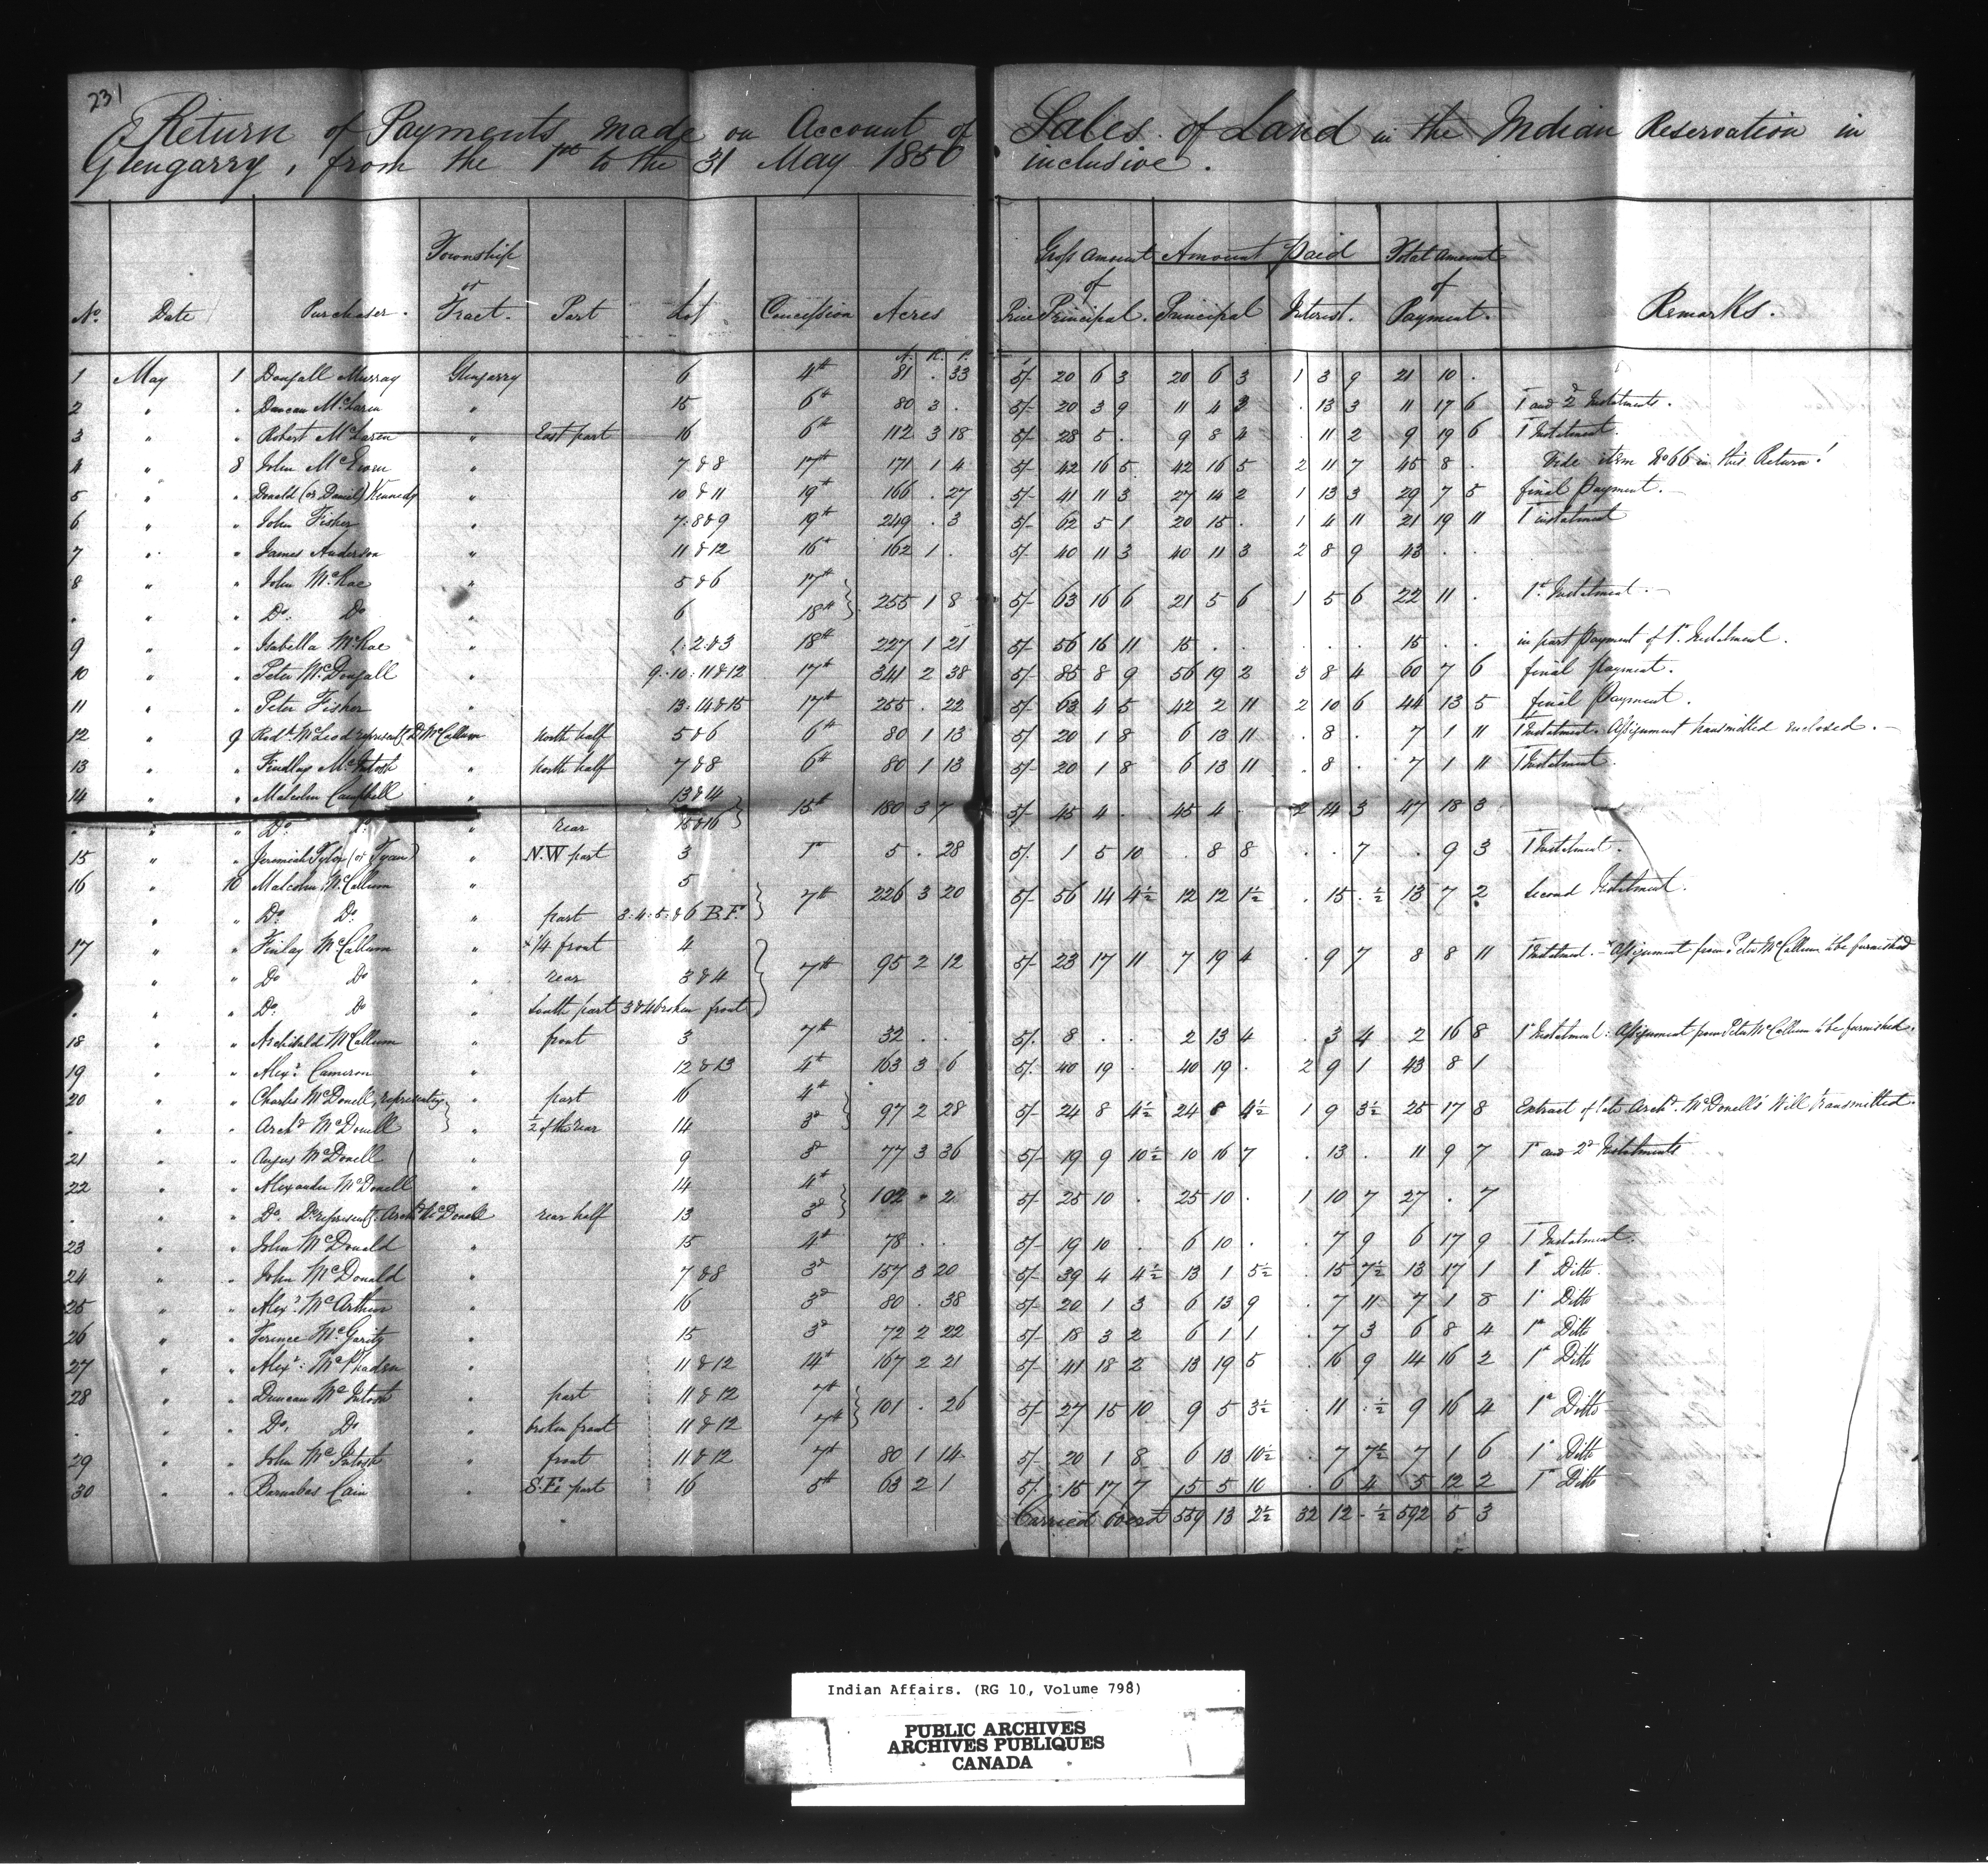 231
A Return of Payments made on Account of Sales of Land in the Indian Reservation in
Glengarry, from the 1st to the 31 May 1850 inclusive.
No. Date Purchaser. Township or Tract. Part Lot Concession Acres Price Gross Amount of Principal. Amount Paid Principal Interest. Total Amount of Payment. Remarks.
A. R. P.
1 May 1 Dougall Murray Glengarry 6 4th 81 . 33 5/- 20 6 3 20 6 3 1 3 9 21 10 .
2 " " Duncan McLaren " 15 6th 80 3 . 5/- 20 3 9 11 4 3 . 13 3 11 17 6 1st and 2d Instalments.
3 " " Robert McLaren " East part 16 6th 112 3 18 5/- 28 5 . 9 8 4 . 11 2 9 19 6 1st Instalment.
4 " 8 John McEwen " 7 & 8 17th 171 1 4 5/- 42 16 5 42 16 5 2 11 7 45 8 . Vide item No 66 in this Return!
5 " " Donald (or Daniel) Kennedy " 10 & 11 19th 166 . 27 5/- 41 11 3 27 14 2 1 13 3 29 7 5 final Payment.
6 " " John Fisher " 7: 8 & 9 19th 249 . 3 5/- 62 5 1 20 15 . 1 4 11 21 19 11 1st instalment
7 " " James Anderson " 11 & 12 16th 162 1 . 5/- 40 11 3 40 11 3 2 8 9 43 . .
8 " " John McRae " 5 & 6 17th
" " " Do. Do " 6 18th 255 1 8 5/- 63 16 6 21 5 6 1 5 6 22 11 . 1st Instalment.
9 " " Isabella McRae " 1: 2: & 3 18th 227 1 21 5/- 56 16 11 15 . . . . . 15 . . in part payment of 1st Instalment.
10 " " Peter McDougall " 9: 10: 11 & 12 17th 341 2 38 5/- 85 8 9 56 19 2 3 8 4 60 7 6 final payment.
11 " " Peter Fisher " 13: 14 & 15 17th 255 . 22 5/- 63 4 5 42 2 11 2 10 6 44 13 5 final Payment.
12 " 9 Rodk McLeod representg D. McCallum " North half 5 & 6 6th 80 1 13 5/ 20 1 8 6 13 11 . 8 . 7 1 11 1st Instalment. Assignment transmitted enclosed.
13 " " Findlay McIntosh " North half 7 & 8 6th 80 1 13 5/- 20 1 8 6 13 11 . 8 . 7 1 11 1st Instalment.
14 " " Malcolm Campbell " 13 & 14
" " " Do. Do. " rear 15 & 16 15th 180 3 7 5/- 45 4 . 45 4 . 2 14 3 47 18 3
15 " " Jeremiah Tyler (or Tyean) " N.W part 3 1st 5 . 28 5/. 1 5 10 . 8 8 . . 7 . 9 3 1st Instalment.
16 " 10 Malcolm McCallum " 5
" " Do. Do. " part 3: 4: 5: & 6 B.F. 7th 226 3 20 5/- 56 14 4½ 12 12 1½ . 15 . ½ 13 7 2 Second Instalment.
17 " " Finlay McCallum " × ¼ front 4
" " Do Do " rear 3 & 4 7th 95 2 12 5/- 23 17 11 7 19 4 . 9 7 8 8 11 1st Instalment. × Assignment from Peter McCallum to be furnished
" " Do. Do " South part 3 & 4 broken front
18 " " Archibald McCallum " front 3 7th 32 . . 5/. 8 . . 2 13 4 . 3 4 2 16 8 1st Instalment: Assignment from Peter McCallum to be furnished.
19 " " Alexr. Cameron " 12 & 13 4th 163 3 6 5/. 40 19 . 40 19 . 2 9 1 43 8 1
20 " " Charles McDonell, representing " part 16 4th
" " " Archd McDonell " ½ of the rear 14 3d 97 2 28 5/- 24 8 4½ 24 8 4½ 1 9 3½ 25 17 8 Extract of late Archd. McDonell's Will transmitted.
21 " " Angus McDonell " 9 3d 77 3 36 5/- 19 9 10½ 10 16 7 . 13 . 11 9 7 1st and 2d Instalments
22 " " Alexander McDonell " 14 4th
" " " Do. Do representg. Archd McDonell rear half 13 3d 102 " 2 5/- 25 10 . 25 10 . 1 10 7 27 . 7
23 " " John McDonald " 15 4th 78 . . 5/- 19 10 . 6 10 . . 7 9 6 17 9 1st Instalment.
24 " " John McDonald " 7 & 8 3d 157 3 20 5/- 39 4 4½ 13 1 5½ . 15 7½ 13 17 1 1st Ditto.
25 " " Alexr. McArthur " 16 3d 80 . 38 5/- 20 1 3 6 13 9 . 7 11 7 1 8 1st Ditto
26 " " Terence McGarity " 15 3d 72 2 22 5/- 18 3 2 6 1 1 . 7 3 6 8 4 1st Ditto
27 " " Alexr: McPhaden " 11 & 12 14th 167 2 21 5/- 41 18 2 13 19 5 . 16 9 14 16 2 1st Ditto
28 " " Duncan McIntosh " part 11 & 12 7th
" " " Do. Do " broken front 11 & 12 7th 101 . 26 5/- 27 15 10 9 5 3½ . 11 . ½ 9 16 4 1st Ditto
29 " " John McIntosh " front 11 & 12 7th 80 1 14 5/- 20 1 8 6 13 10½ . 7 7½ 7 1 6 1st Ditto
30 " " Barnabas Cain " S.E. part 16 5th 63 2 1 5/. 15 17 7 5 5 10 . 6 4 5 12 2 1st Ditto
Carried Overd 559 13 2½ 32 12 . ½ 592 5 3
Indian Affairs. (RG 10, Volume 798)
PUBLIC ARCHIVES
ARCHIVES PUBLIQUES
CANADA